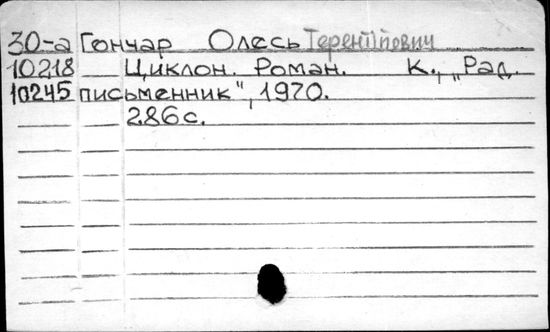 30-а Гончар Олесь Терентійович
10218 Циклон. Роман. К., „Рад.
10245 письменник", 1970.
286с.